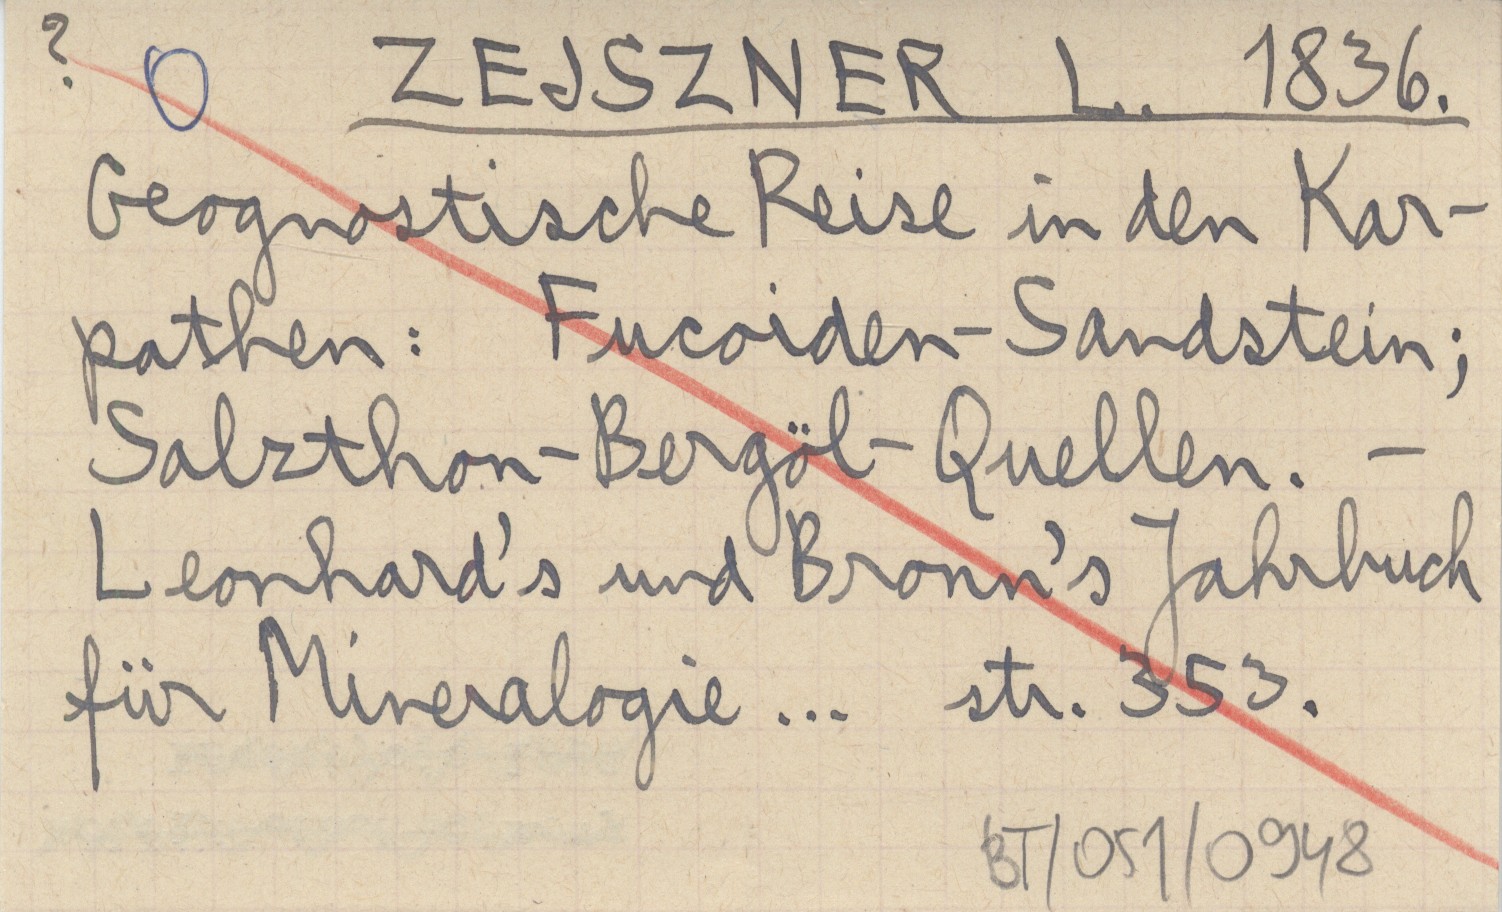 ? O ZEJSZNER L. 1836.
Geognostische Reise in den Kar-
pathen: Fucoiden-Sandstein;
Salzthon-Bergöl-Quellen. –
Leonhard's und Bronn's Jahrbuch
für Mineralogie ... str. 353.
BT/051/0948